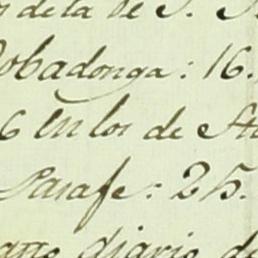 de la de S.
Cobadonga: 16.
6 En los de
Parafe: 25.
diario de